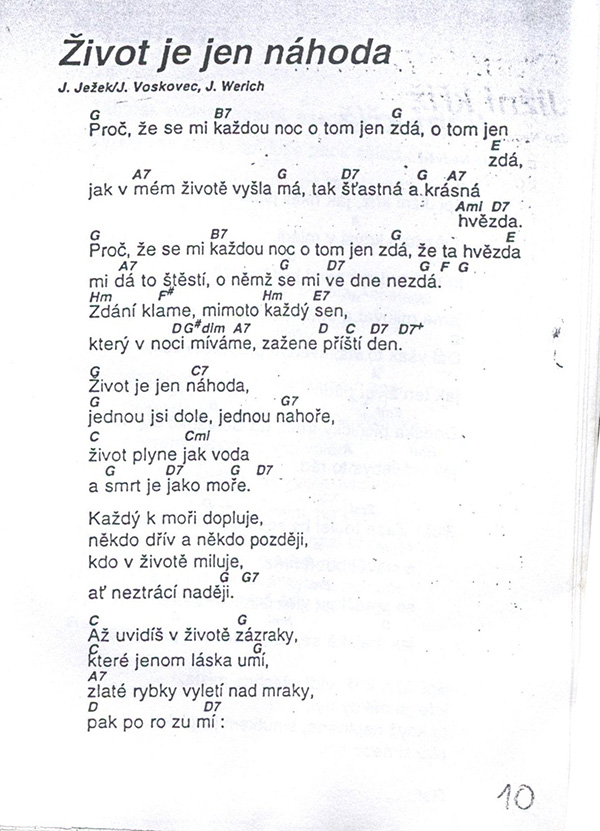 Život je jen náhoda
J. Ježek/J. Voskovec, J. Werich
G B7 G
Proč, že se mi každou noc o tom jen zdá, o tom jen
E
zdá,
A7 G D7 G A7
jak v mém životě vyšla má, tak šťastná a krásná
Ami D7
hvězda.
G B7 G E
Proč, že se mi každou noc o tom jen zdá, že ta hvězda
A7 G D7 G F G
mi dá to štěstí, o němž se mi ve dne nezdá.
Hm F# Hm E7
Zdání klame, mimoto každý sen,
D G#dim A7 D C D7 D7+
který v noci míváme, zažene příští den.
G C7
Život je jen náhoda,
G G7
jednou jsi dole, jednou nahoře,
C Cmi
život plyne jak voda
G D7 G D7
a smrt je jako moře.
Každý k moři dopluje,
někdo dřív a někdo později,
kdo v životě miluje,
G G7
ať neztrácí naději.
C G
Až uvidíš v životě zázraky,
C G
které jenom láska umí,
A7
zlaté rybky vyletí nad mraky,
D D7
pak po ro zu mí :
10